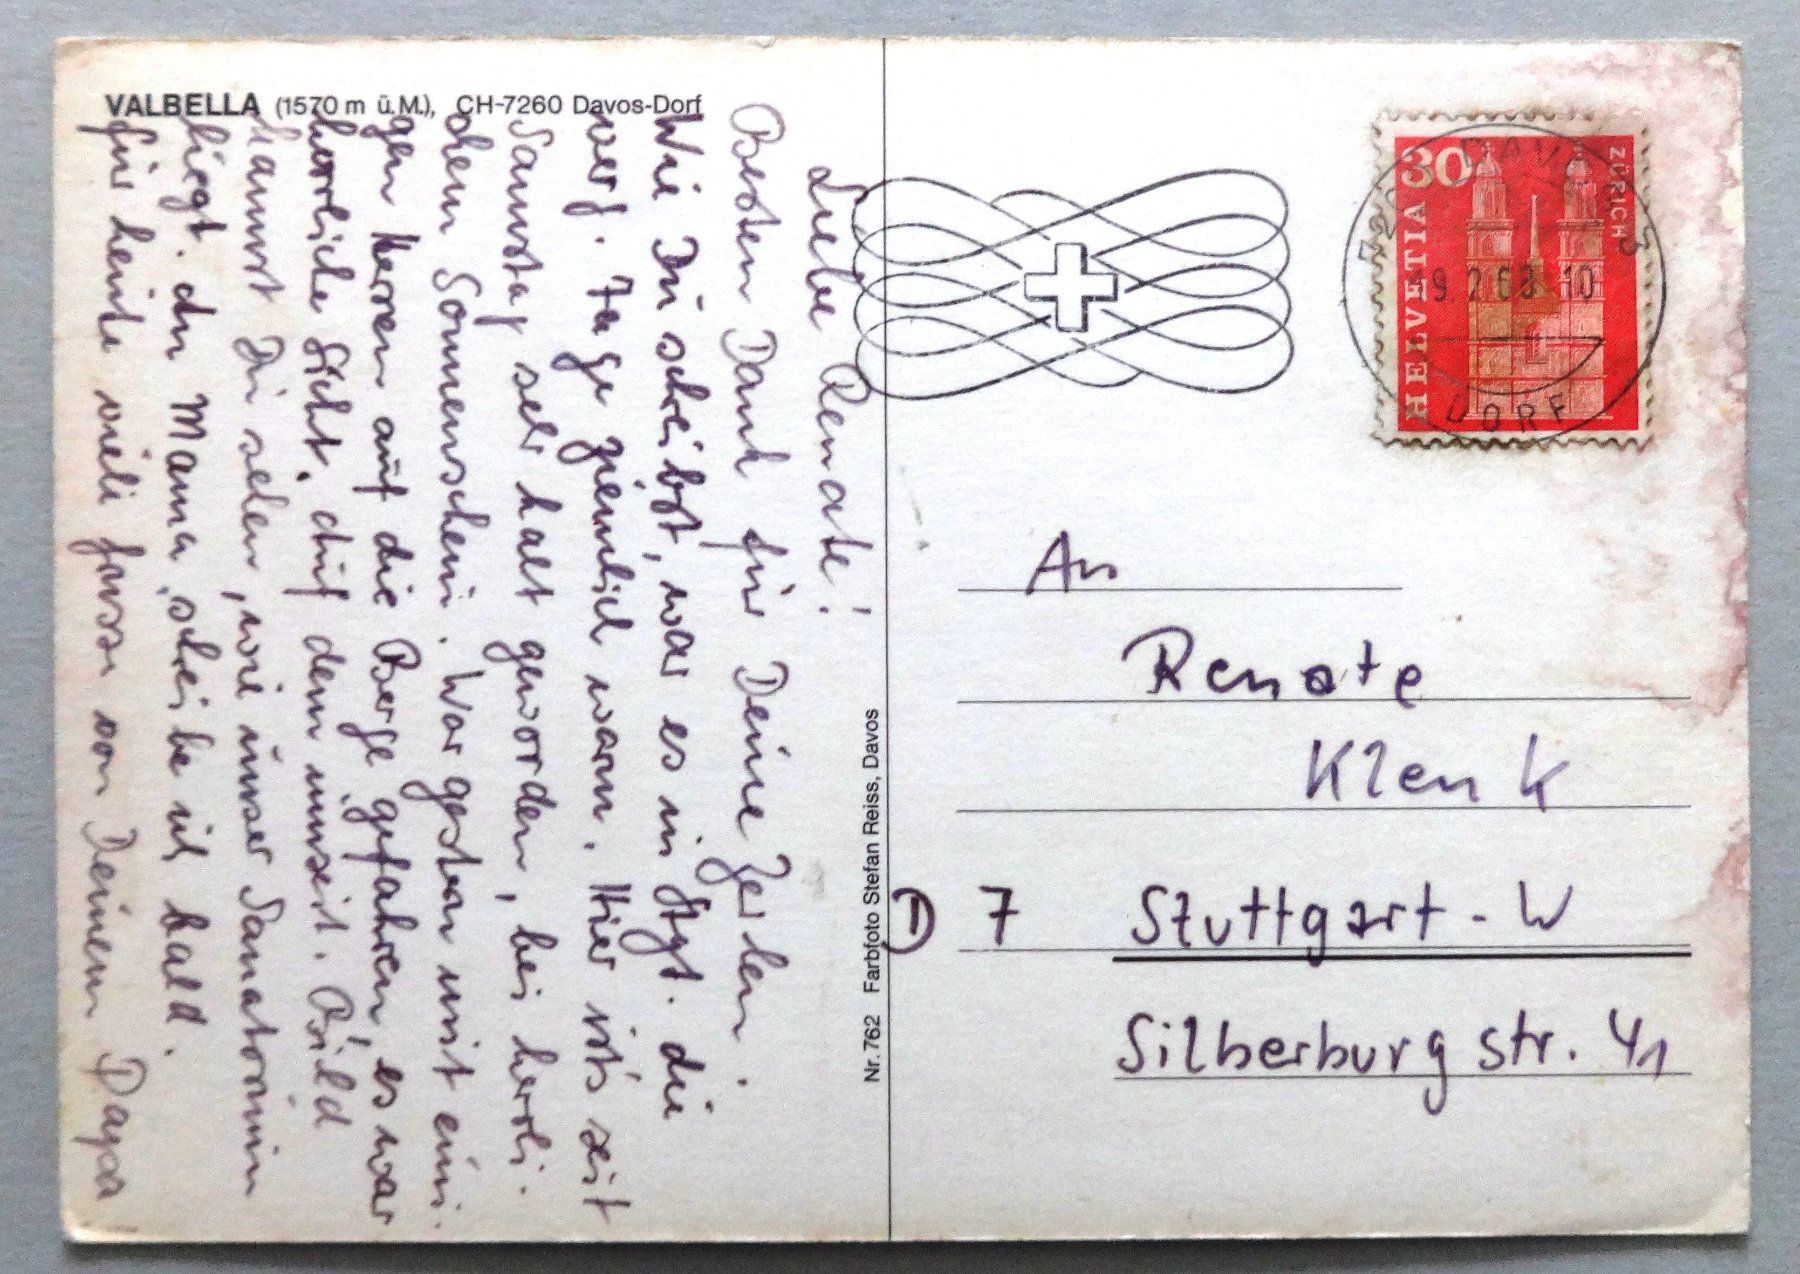 VALBELLA (1570 m ü.M.), CH-7260 Davos-Dorf
Liebe Renate!
Besten Dank für Deine Zeilen.
Wie Du schreibst, war es in Stgt. die
Tage ziemlich warm. Hier ist's seit
Samstag sehr kalt geworden, bei herrli-
chem Sonnenschein. War gestern mit eini-
gen Herren auf die Berge gefahren, es war
herrliche Sicht. Auf dem umseit. Bild
kannst Du sehen, wie unser Sanatorium
liegt. An Mama schreibe ich bald.
Für heute viele von Deinem Papa
Nr. 762 Farbfoto Stefan Reiss, Davos
HELVETIA
30
ZÜRICH
DAVOS
9.2.68.10
DORF
An
Renate
Klenk
D 7 Stuttgart - W
Silberburgstr. 41